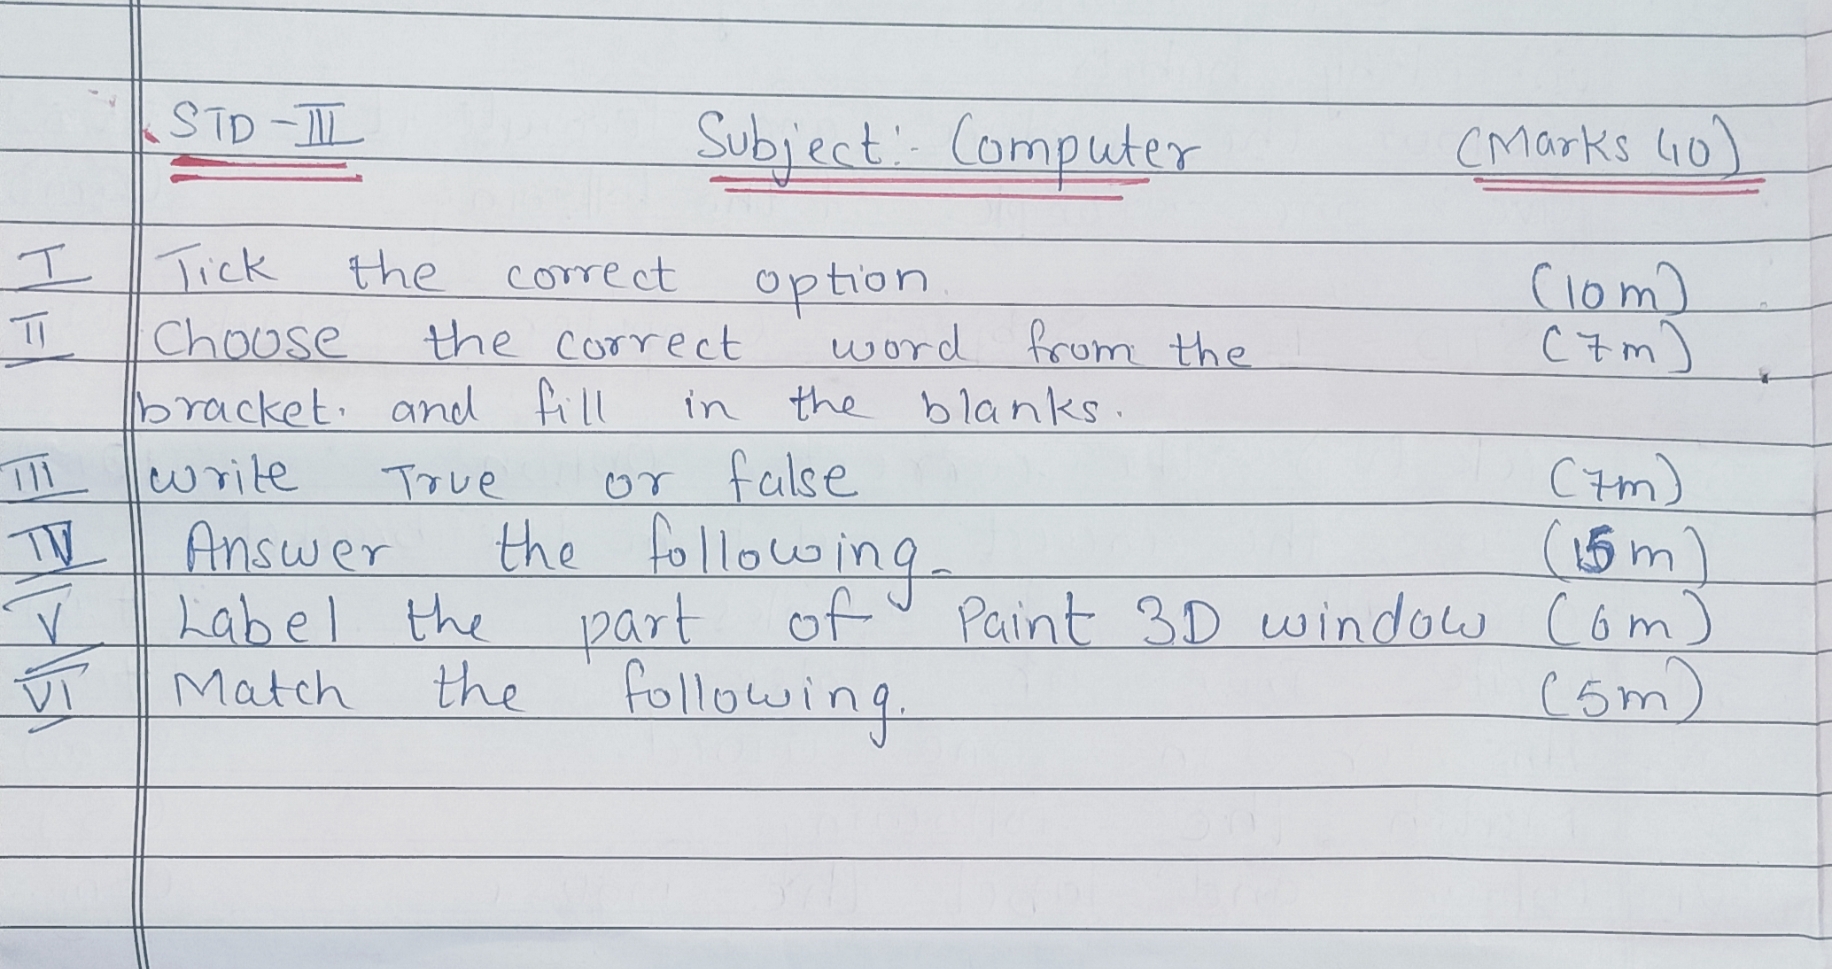 STD - III Subject:- Computer (Marks 40)
I Tick the correct option. (10m)
II Choose the correct word from the (7m)
bracket. and fill in the blanks.
III write True or false (7m)
IV Answer the following. (15m)
V Label the part of Paint 3D window (6m)
VI Match the following. (5m)